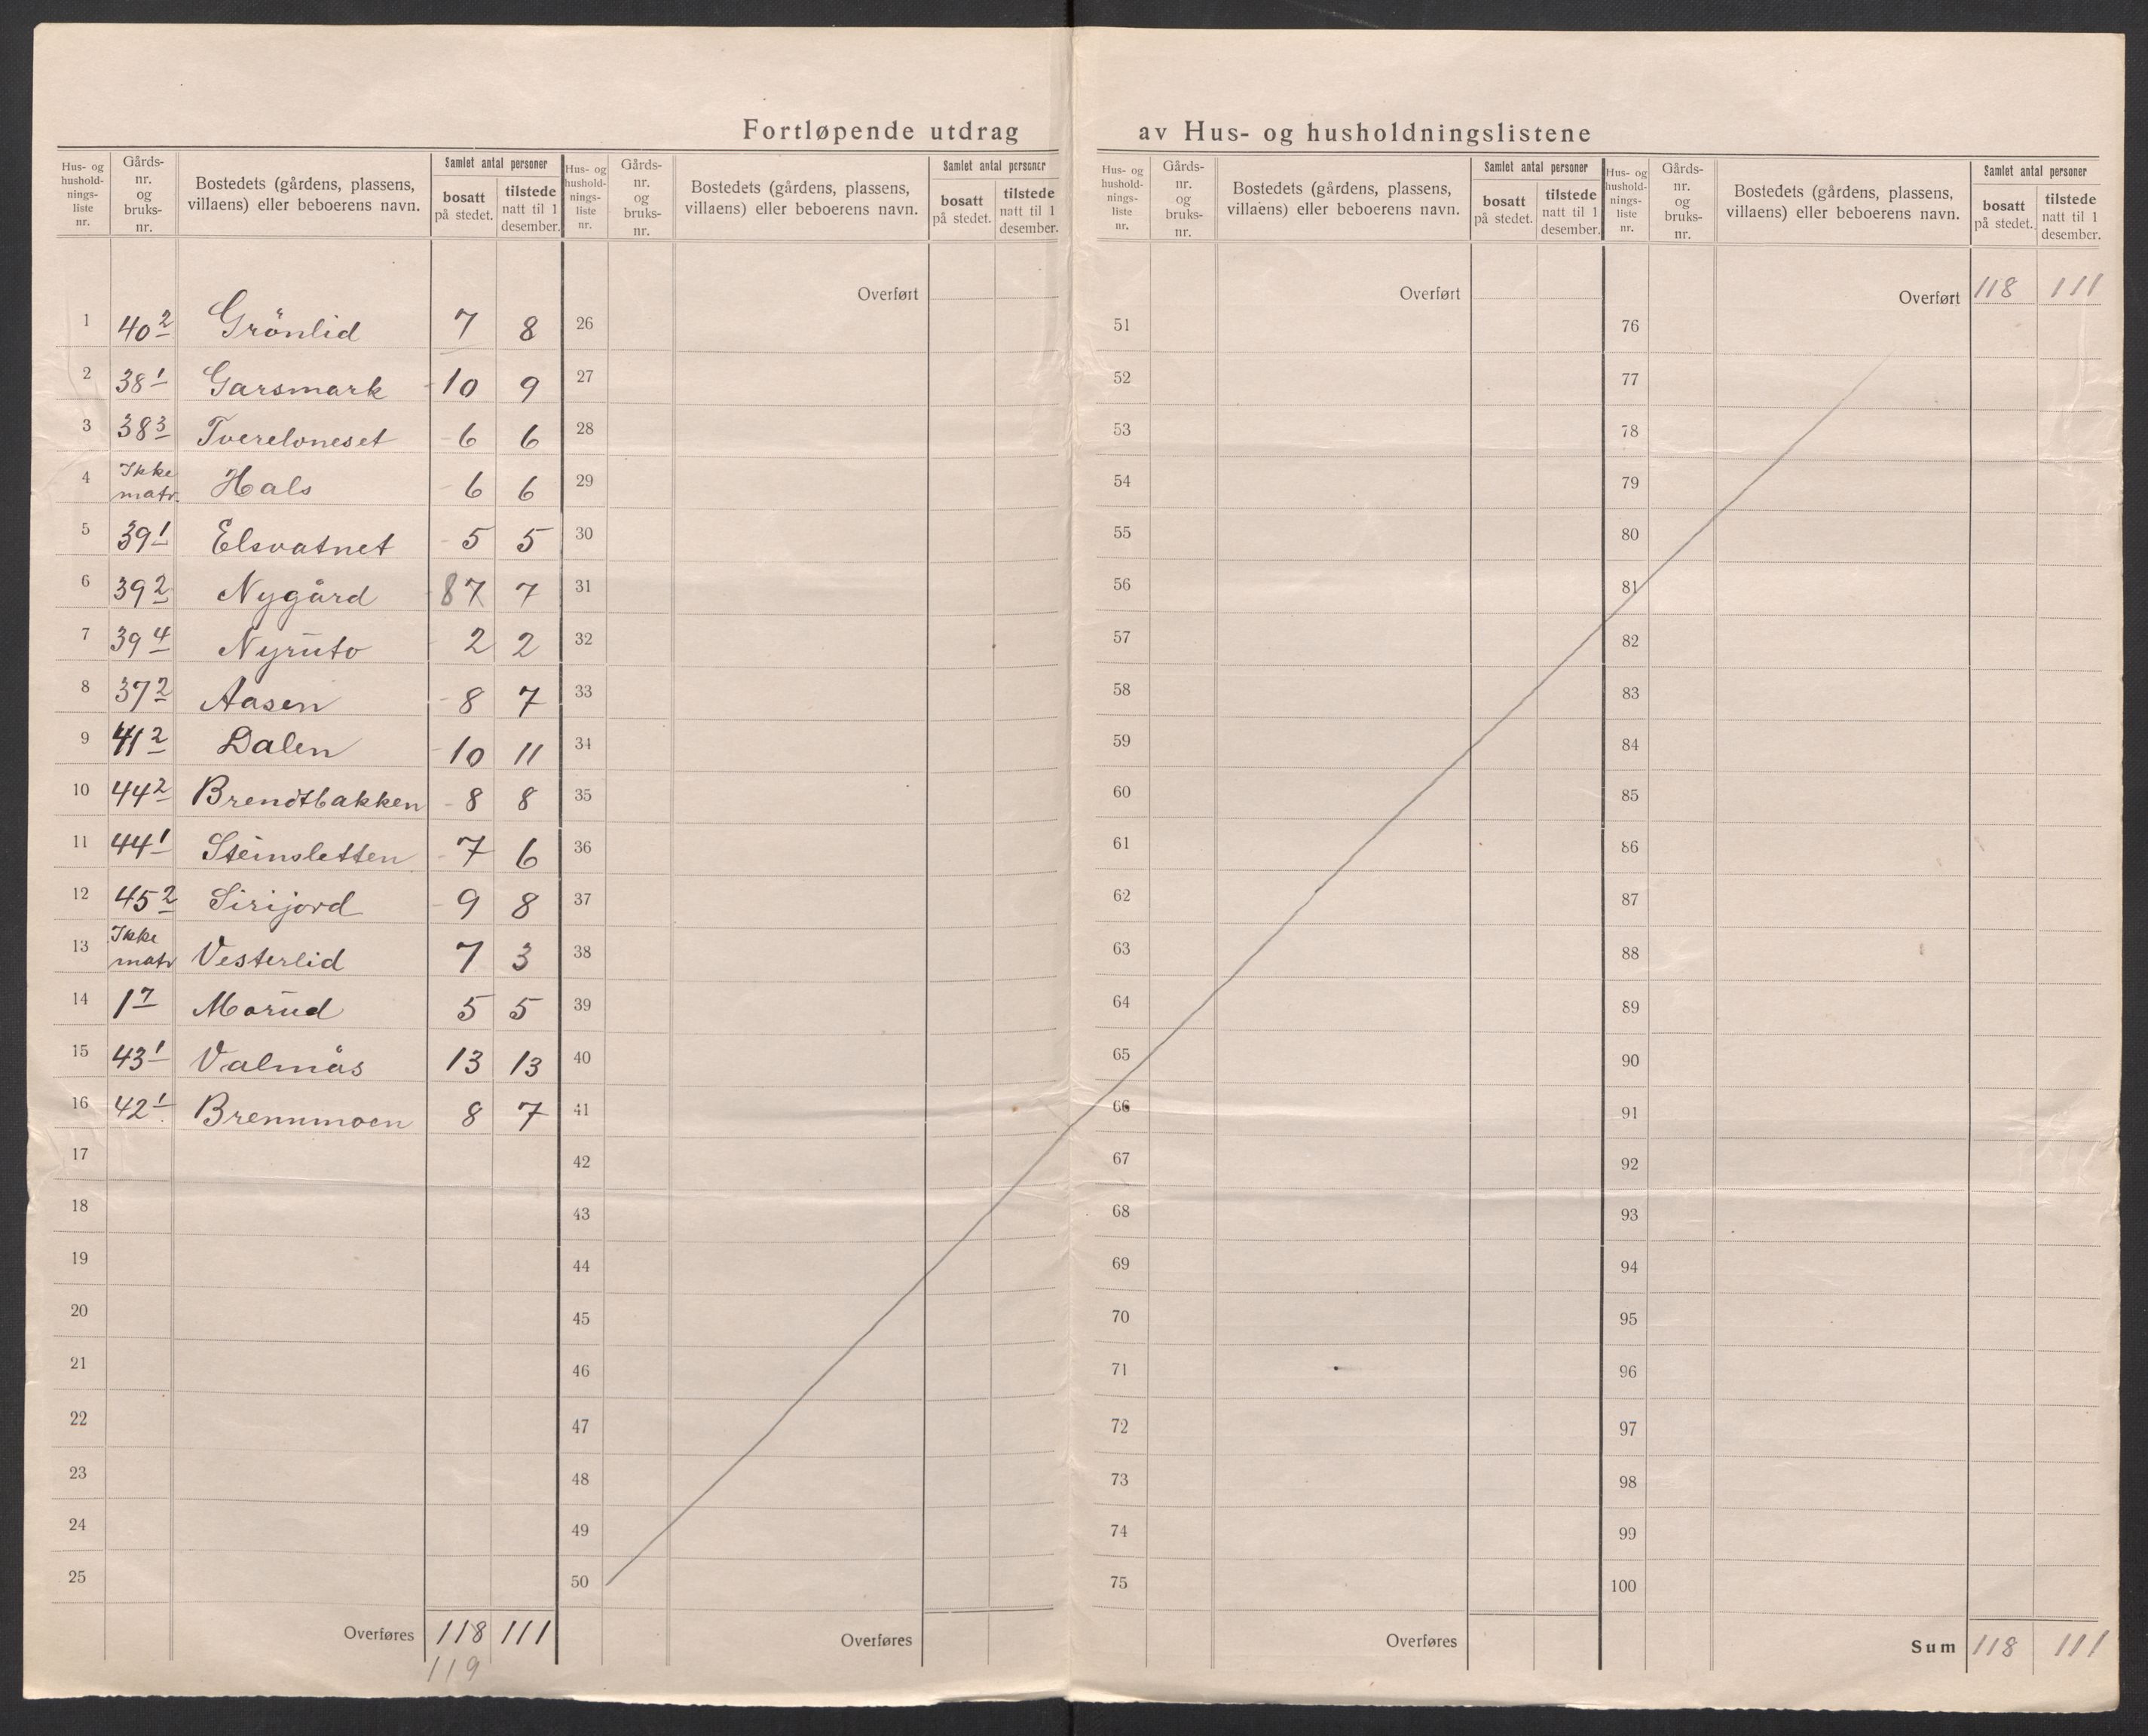 Fortløpende utdrag av Hus- og husholdningslistene
Hus- og hushold-nings-liste nr. Gårds-nr. og bruks-nr. Bostedets (gårdens, plassens, villaens) eller beboerens navn. Samlet antal personer bosatt på stedet. tilstede natt til 1 desember.
Hus- og hushold-nings-liste nr. Gårds-nr. og bruks-nr. Bostedets (gårdens, plassens, villaens) eller beboerens navn. Samlet antal personer bosatt på stedet. tilstede natt til 1 desember.
Hus- og hushold-nings-liste nr. Gårds-nr. og bruks-nr. Bostedets (gårdens, plassens, villaens) eller beboerens navn. Samlet antal personer bosatt på stedet. tilstede natt til 1 desember.
Hus- og hushold-nings-liste nr. Gårds-nr. og bruks-nr. Bostedets (gårdens, plassens, villaens) eller beboerens navn. Samlet antal personer bosatt på stedet. tilstede natt til 1 desember.
1 40 2 Grönlid 7 8
2 38 1 Garsmark 10 9
3 38 3 Tverelvneset 6 6
4 Ikke matr. Hals 6 6
5 39 1 Elsvatnet 5 5
6 39 2 Nygård 8 7 7
7 39 4 Nyrūto 2 2
8 37 2 Aasen 8 7
9 41 2 Dalen 10 11
10 44 2 Brendtbakken 8 8
11 44 1 Steinsletten 7 6
12 45 2 Sirijord 9 8
13 Ikke matr Vesterlid 7 3
14 1 7 Morūd 5 5
15 43 1 Valmås 13 13
16 42 1 Brennmoen 8 7
17
18
19
20
21
22
23
24
25
Overføres 118 111
119
Overført
26
27
28
29
30
31
32
33
34
35
36
37
38
39
40
41
42
43
44
45
46
47
48
49
50
Overføres
Overført
51
52
53
54
55
56
57
58
59
60
61
62
63
64
65
66
67
68
69
70
71
72
73
74
75
Overføres
Overført 118 111
76
77
78
79
80
81
82
83
84
85
86
87
88
89
90
91
92
93
94
95
96
97
98
99
100
Sum 118 111